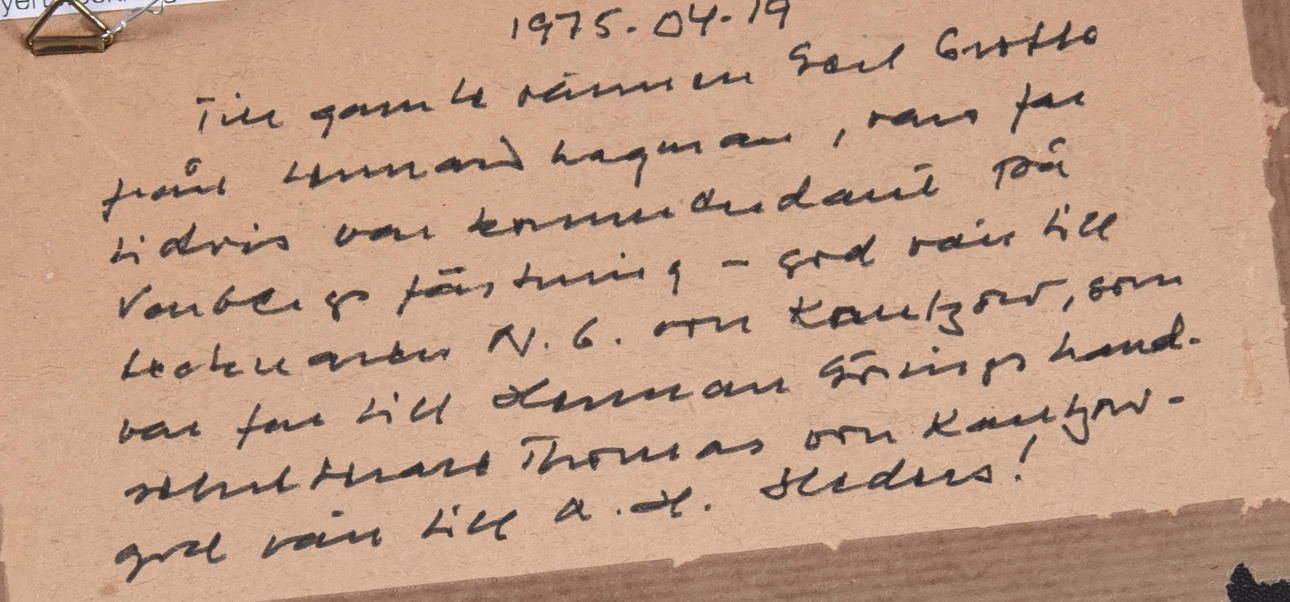 1975-04-19
Till gamle vännen Carl Grotto
från Lennard Hagman, vars far
tidvis var kommendant på
Varbergs fästning - god vän till
tecknaren N. G. von Kantzow, som
var far till Herman Görings hand-
sekreterare Thomas von Kantzow -
god vän till A. H. Heders!